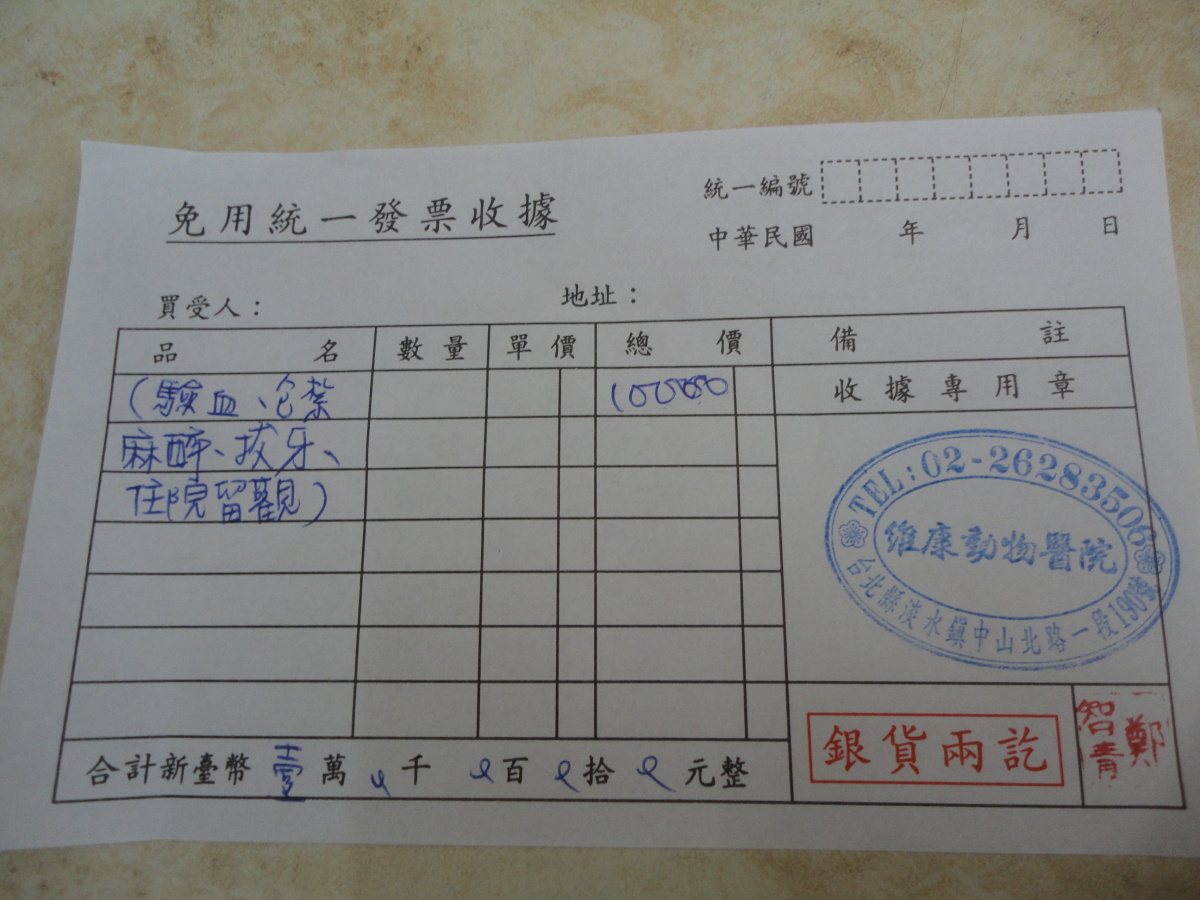 免用統一發票收據
統一編號
中華民國 年 月 日
買受人： 地址：
品名 數量 單價 總價 備註
(驗血、包紮 100000 收據專用章
麻醉、拔牙、
住院留觀)
TEL:02-26283506
維康動物醫院
台北縣淡水鎮中山北路一段190號
銀貨兩訖
鄭智青
合計新臺幣 壹 萬 千 百 拾 元整